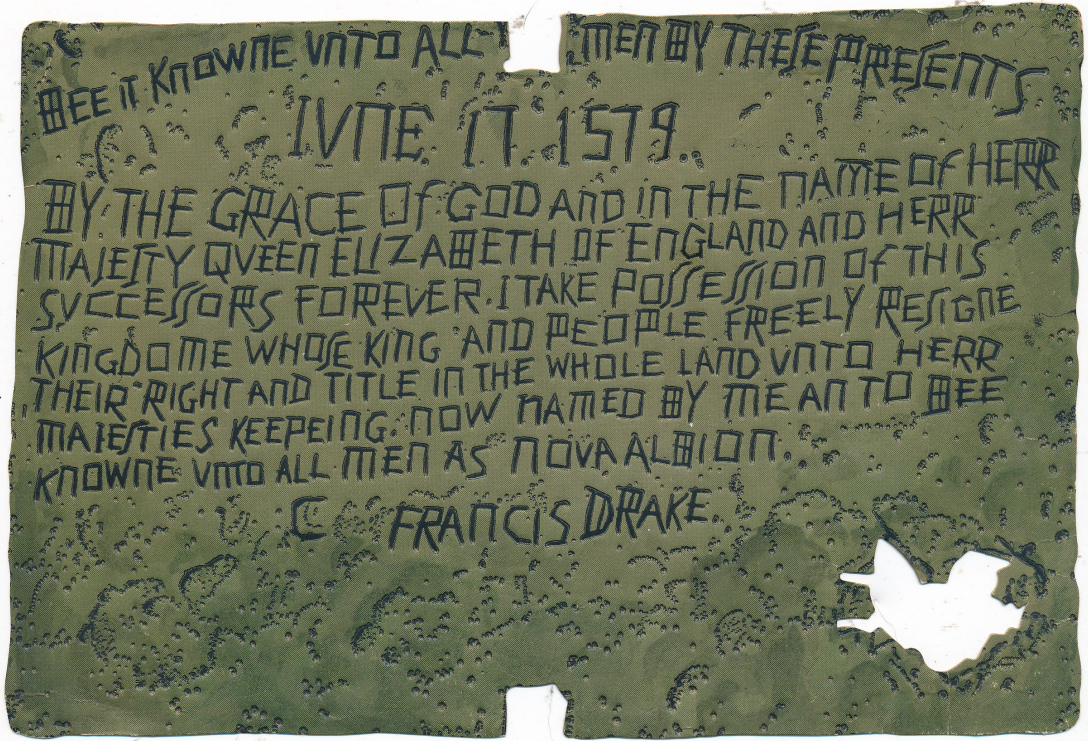 BEE IT KNOWNE VNTO ALL MEN BY THESE PRESENTS
IVNE. 17. 1579.
BY THE GRACE OF GOD AND IN THE NAME OF HERR
MAJESTY QVEEN ELIZABETH OF ENGLAND AND HERR
SVCCESSORS FOREVER. I TAKE POSSESSION OF THIS
KINGDOME WHOSE KING AND PEOPLE FREELY RESIGNE
THEIR RIGHT AND TITLE IN THE WHOLE LAND VNTO HERR
MAIESTIES KEEPEING. NOW NAMED BY ME AN TO BEE
KNOWNE VNTO ALL MEN AS NOVA ALBION.
C FRANCIS DRAKE